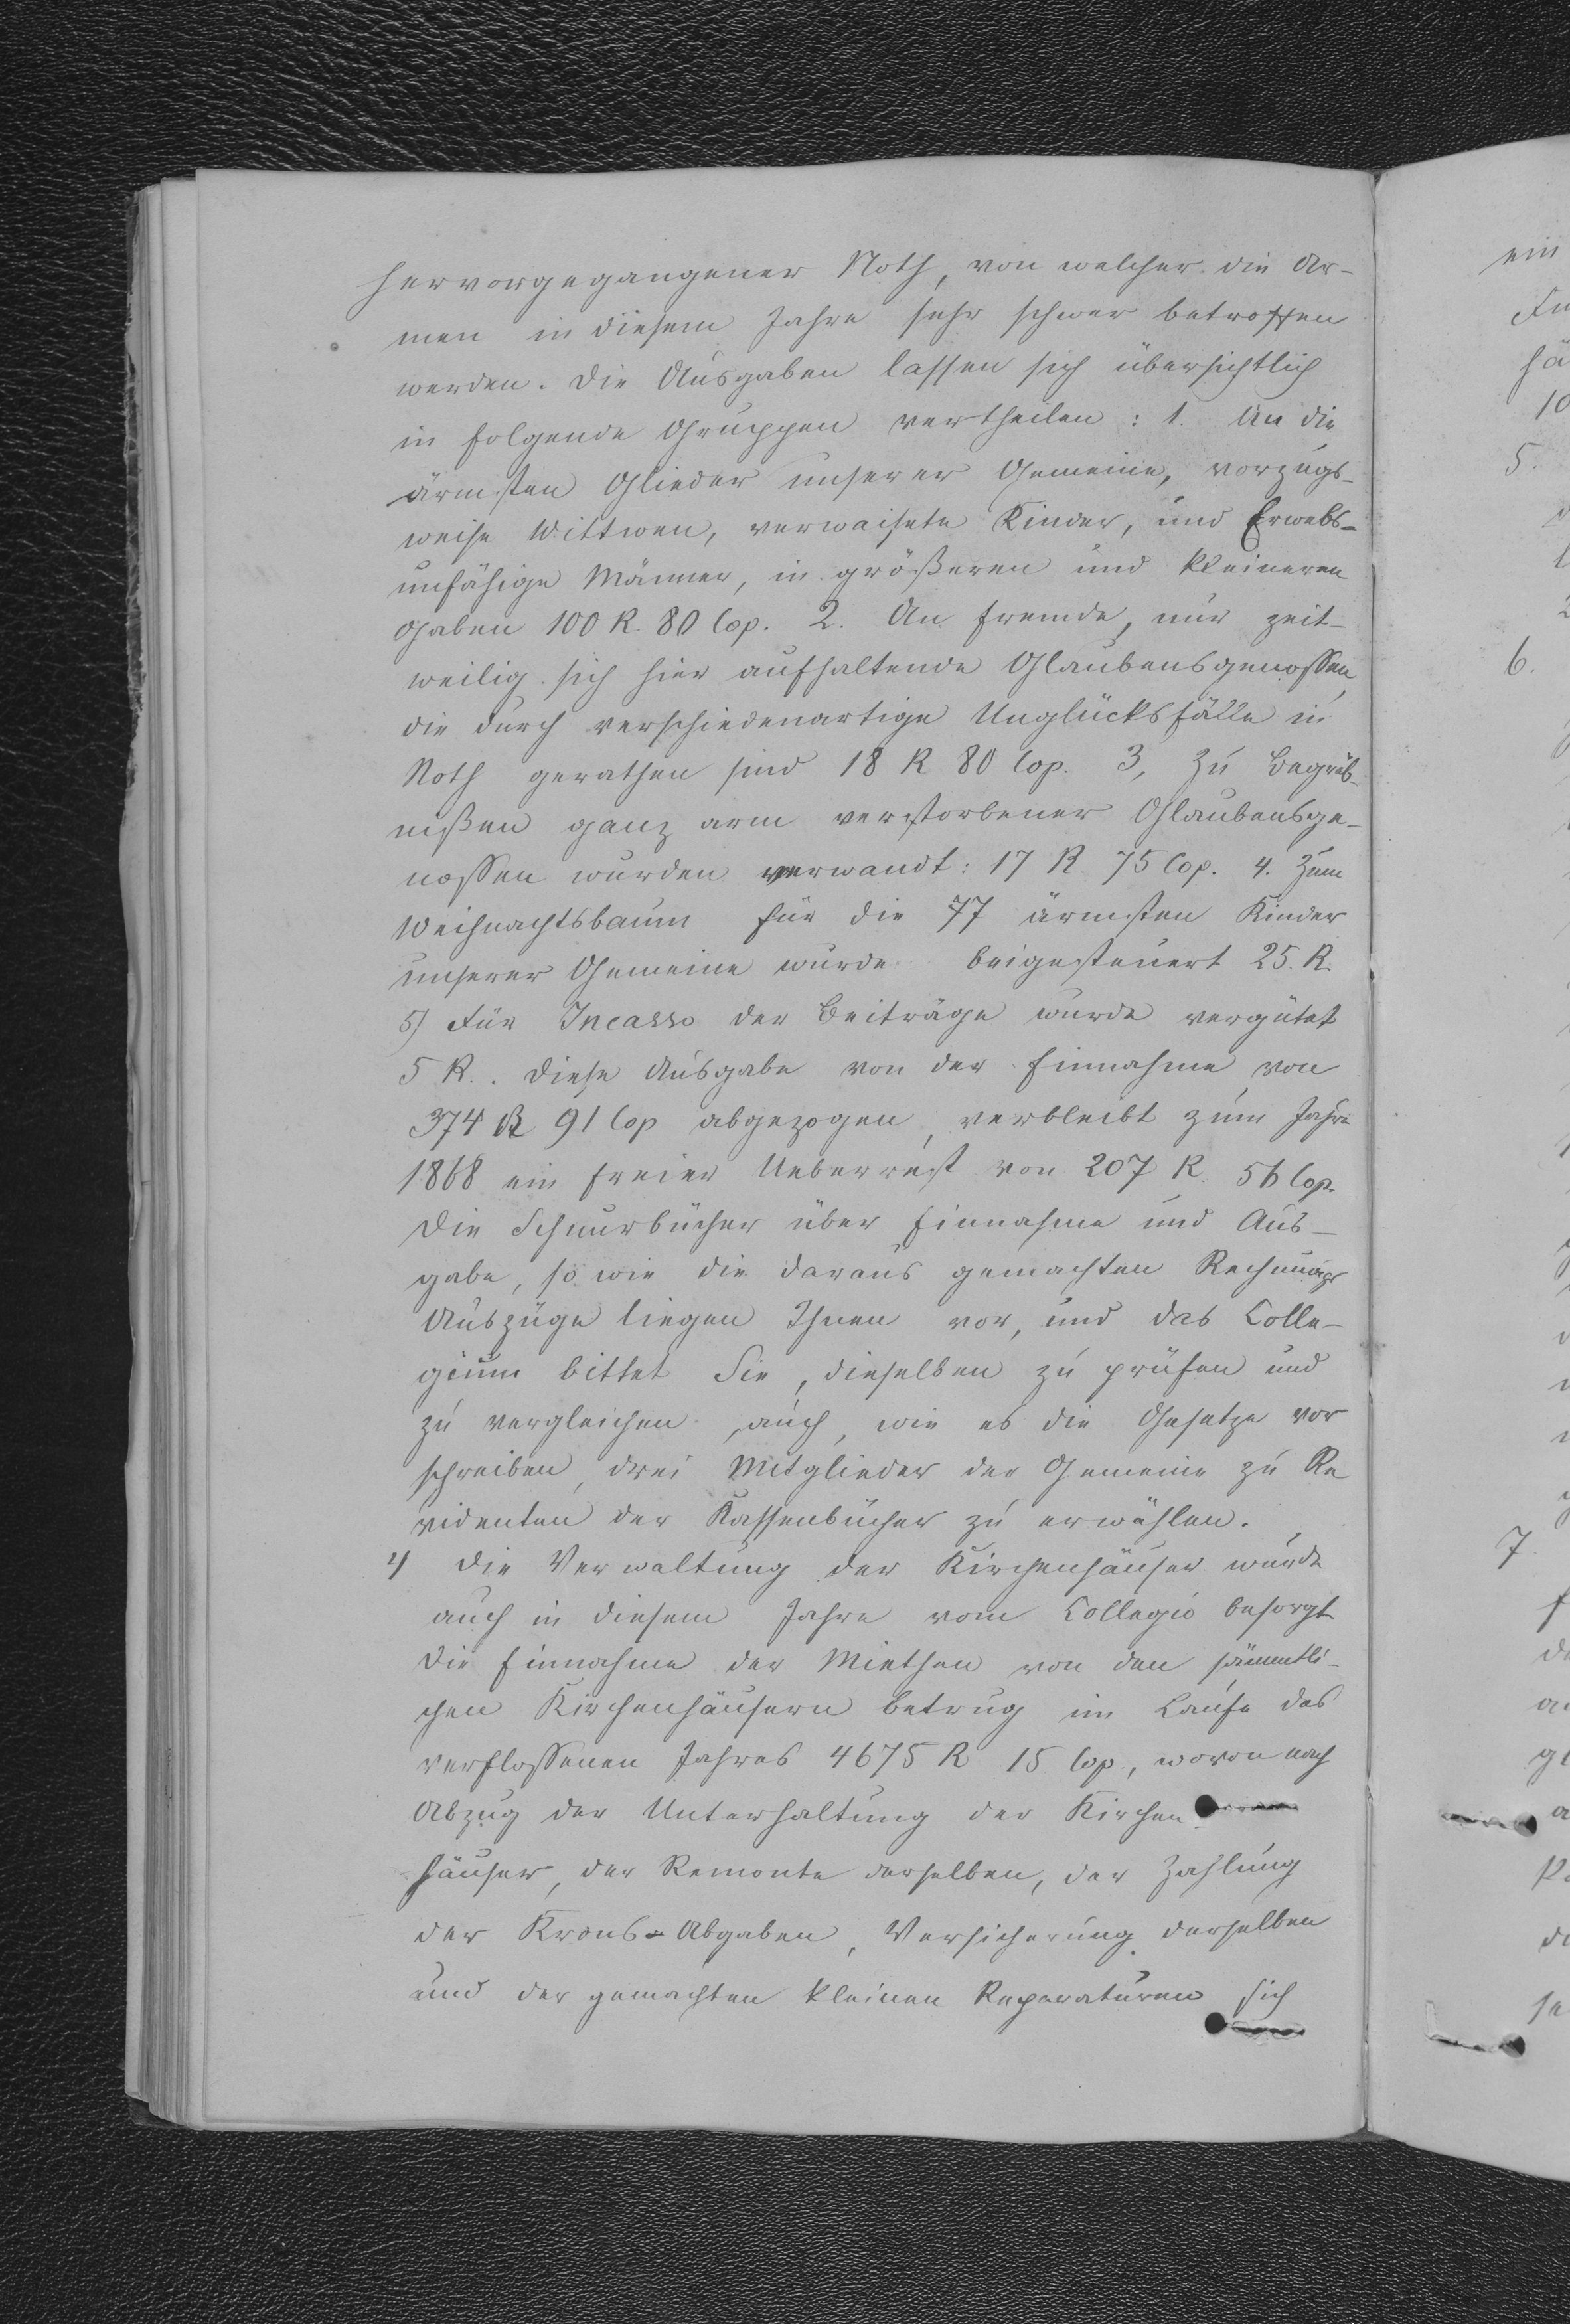 hervorgegangener Noth, von welcher die Ar-
men in diesem Jahre sehr schwer betroffen
werden. Die Ausgaben lassen sich übersichtlich
in folgende Gruppen vertheilen: 1. An die
ärmsten Glieder unserer Gemeine, vorzugs-
weise Wittwen, verwaiste Kinder, und Erwebs-
unfähige Männer, in größeren und kleineren
Gaben 100 R. 80 Cop. 2. An fremde, nur zeit-
weilig sich hier aufhaltende Glaubensgenossen,
die durch verschiedenartige Unglücksfälle in
Noth gerathen sind 18 R 80 Cop. 3, Zu Begräb-
nißen ganz arm verstorbener Glaubensge-
nossen wurden verwandt: 17 R. 75 Cop. 4. Zum
Weihnachtsbaum für die 77 ärmsten Kinder
unserer Gemeine wurde beigesteuert 25. R.
5) Für Incasso der Beiträge wurde vergütet
5 R.. Diese Ausgabe von der Einnahme von
374 R 91 Cop abgezogen, verbleibt zum Jahre
1868 ein freier Ueberrest von 207 R. 56 Cop.
Die Schnurbücher über Einnahme und Aus-
gabe, so wie die daraus gemachten Rechnungs
Auszüge liegen Ihnen vor, und das Colle-
gium bittet Sie, dieselben zu prüfen und
zu vergleichen, auch, wie es die Gesetze vor
schreiben, drei Mitglieder der Gemeine zu Re
videnten der Kassenbücher zu erwählen.
4) Die Verwaltung der Kirchenhäuser wurde
auch in diesem Jahre vom Collegio besorgt
Die Einnahme der Miethen von den sämmtli-
chen Kirchenhäusern betrug im Laufe des
verflossenen Jahres 4675 R 15 Cop., wovon nach
Abzug der Unterhaltung der Kirchen
häuser, der Remonte derselben, der Zahlung
der Krons-Abgaben, Versicherung derselben
und der gemachten kleinen Reparaturen sich
ein
5.
6.
7.